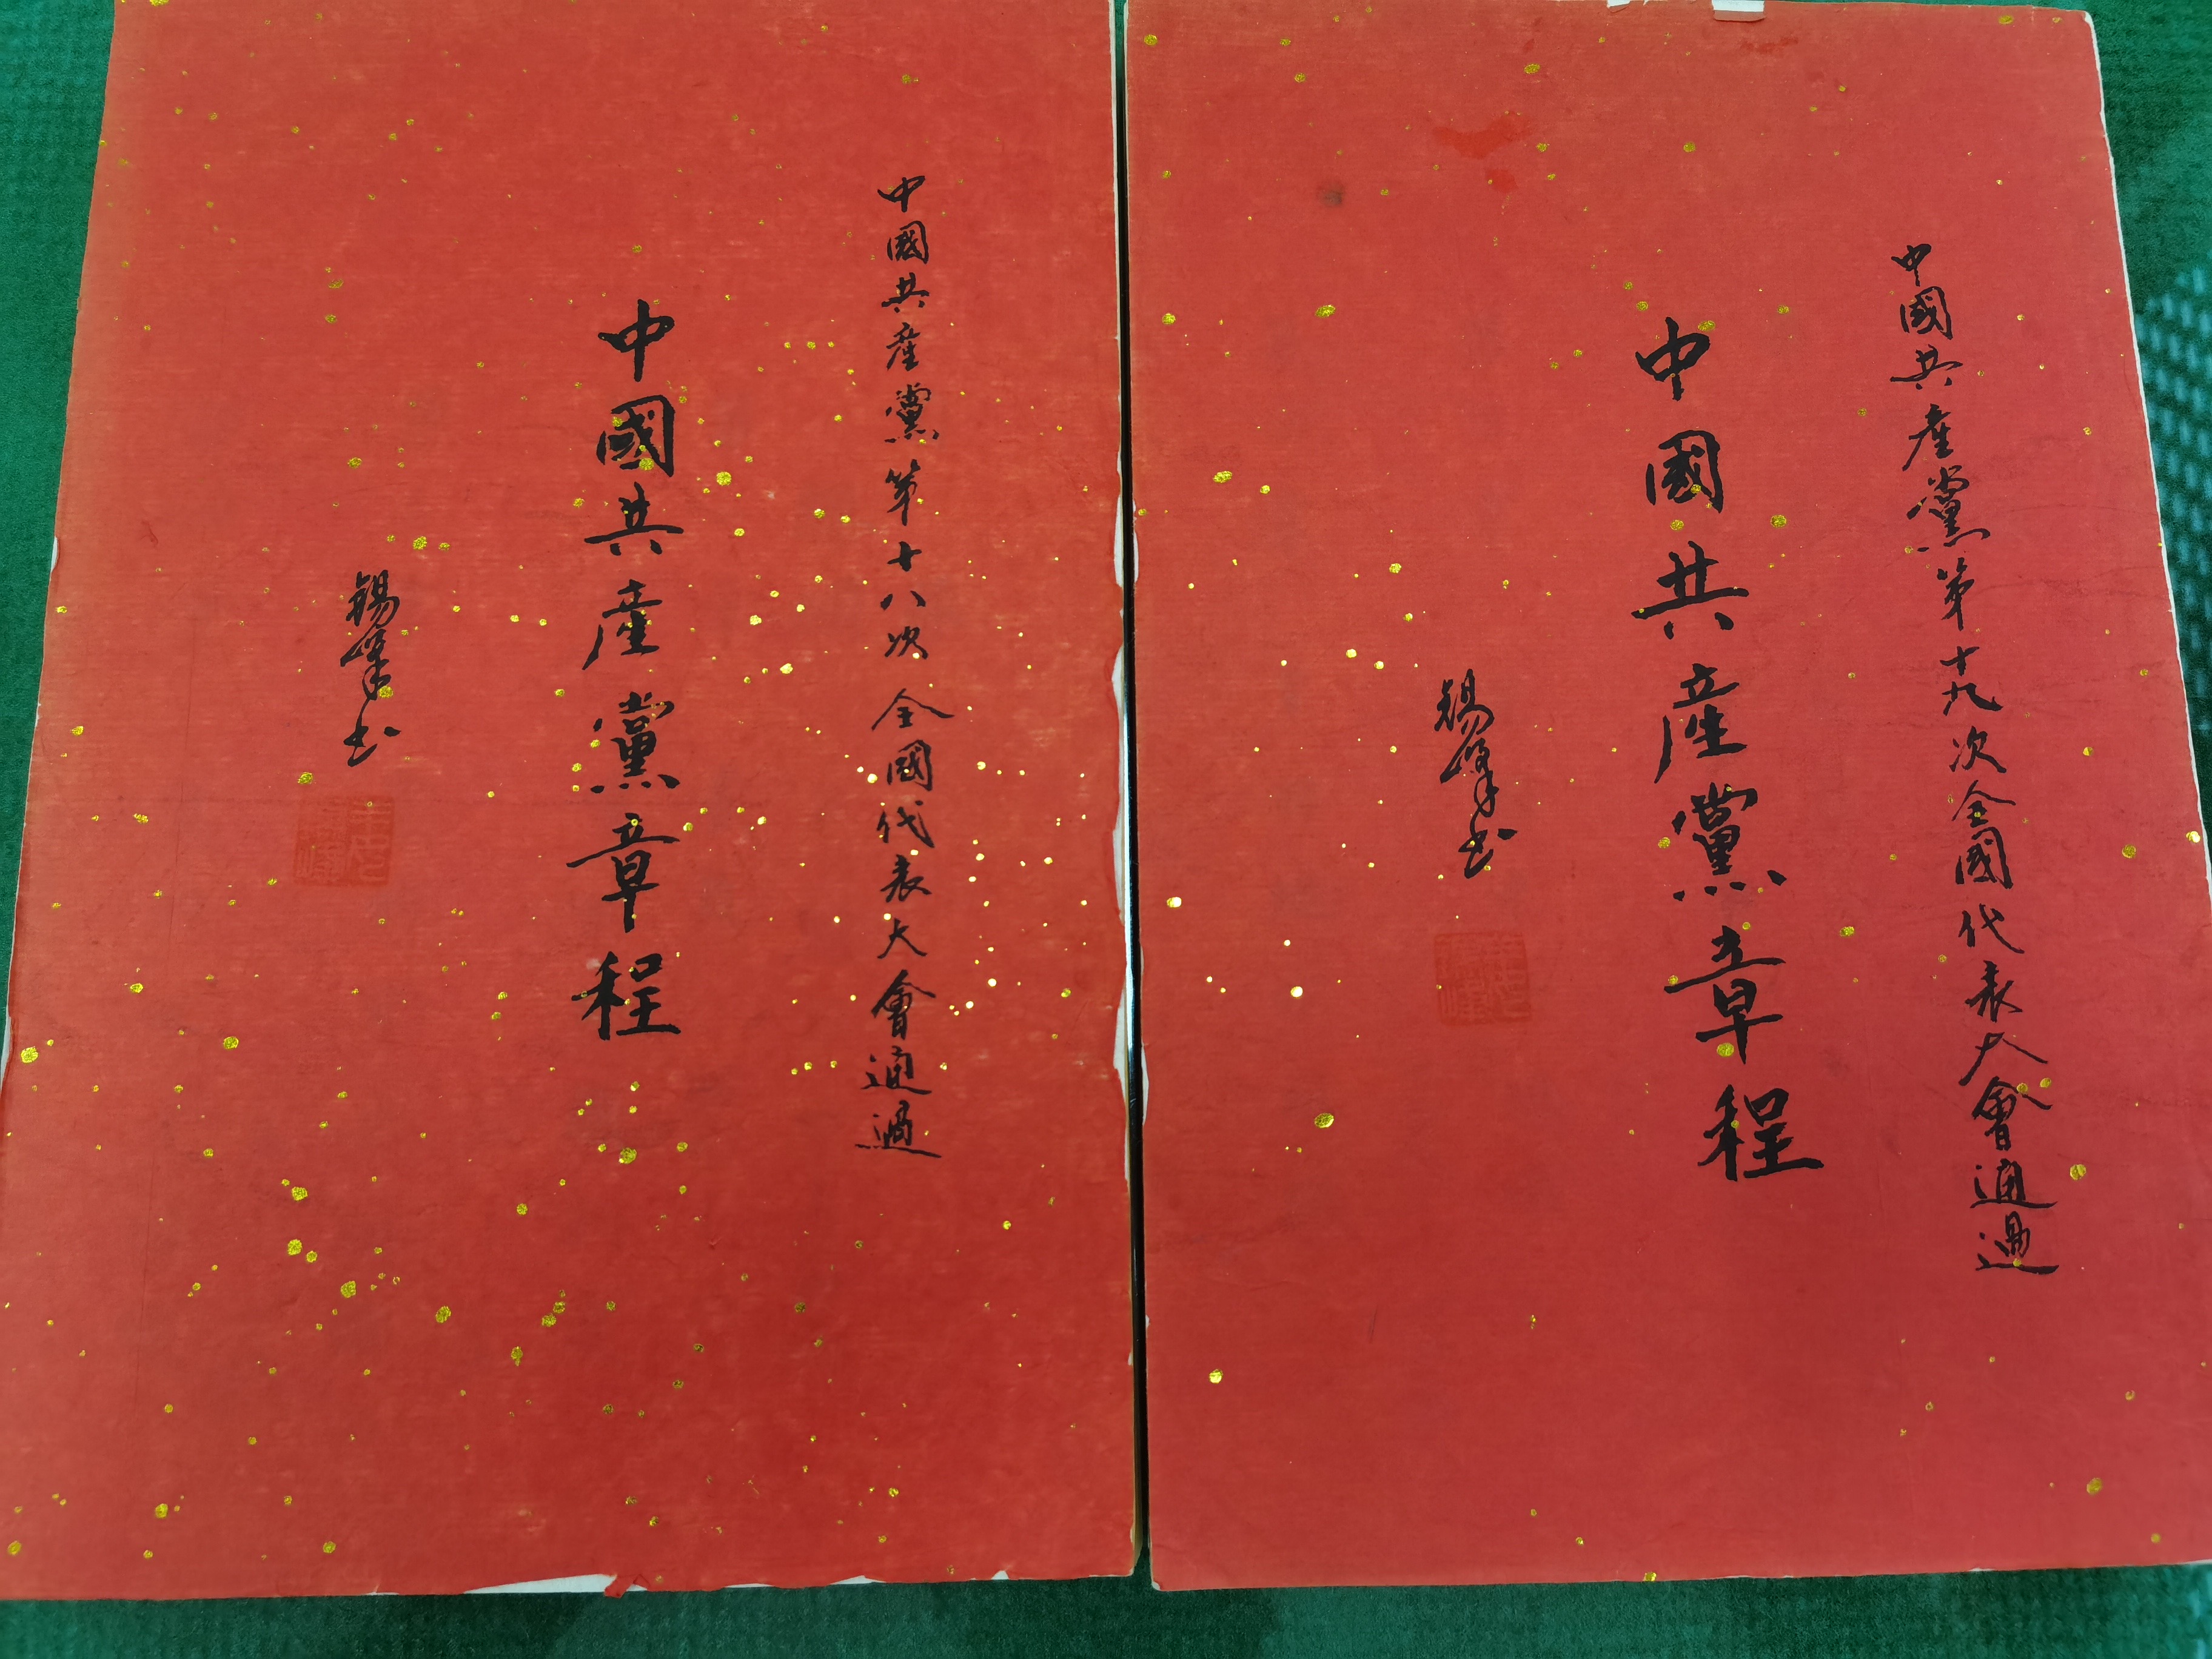 中國共產黨第十九次全國代表大會通過
中國共產黨章程
錫峯书
中國共產黨第十八次全國代表大會通過
中國共產黨章程
錫峯书